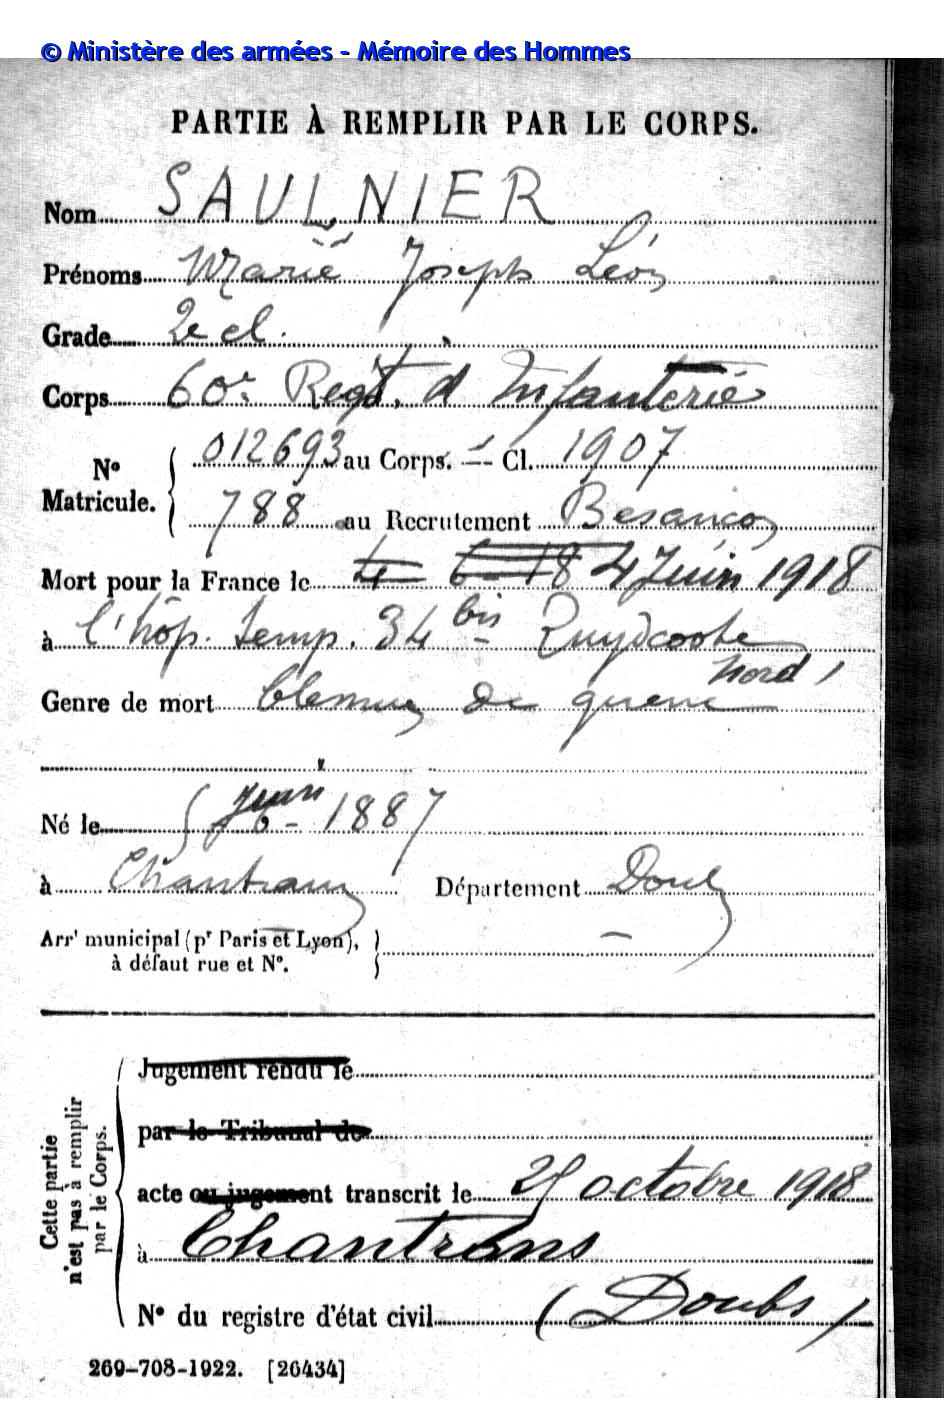 © Ministère des armées - Mémoire des Hommes
PARTIE À REMPLIR PAR LE CORPS.
Nom SAULNIER
Prénoms Marie Joseph Léon
Grade 2e cl.
Corps 60e Regt. d'Infanterie
No Matricule. 012693 au Corps. — Cl. 1907
788 au Recrutement Besançon
Mort pour la France le 4 6 - 18 4 Juin 1918
à l'hôp. temp. 34 bis Zuydcoote
Nord
Genre de mort blessures de guerre
Né le Juin 1887
à Chantrans Département Doubs
Arrt municipal (pr Paris et Lyon),
à défaut rue et No. —
Cette partie
n'est pas à remplir
par le Corps.
Jugement rendu le
par le Tribunal de
acte ou jugement transcrit le octobre 1918
à Chantrans
No du registre d'état civil (Doubs)
269-708-1922. [26434]